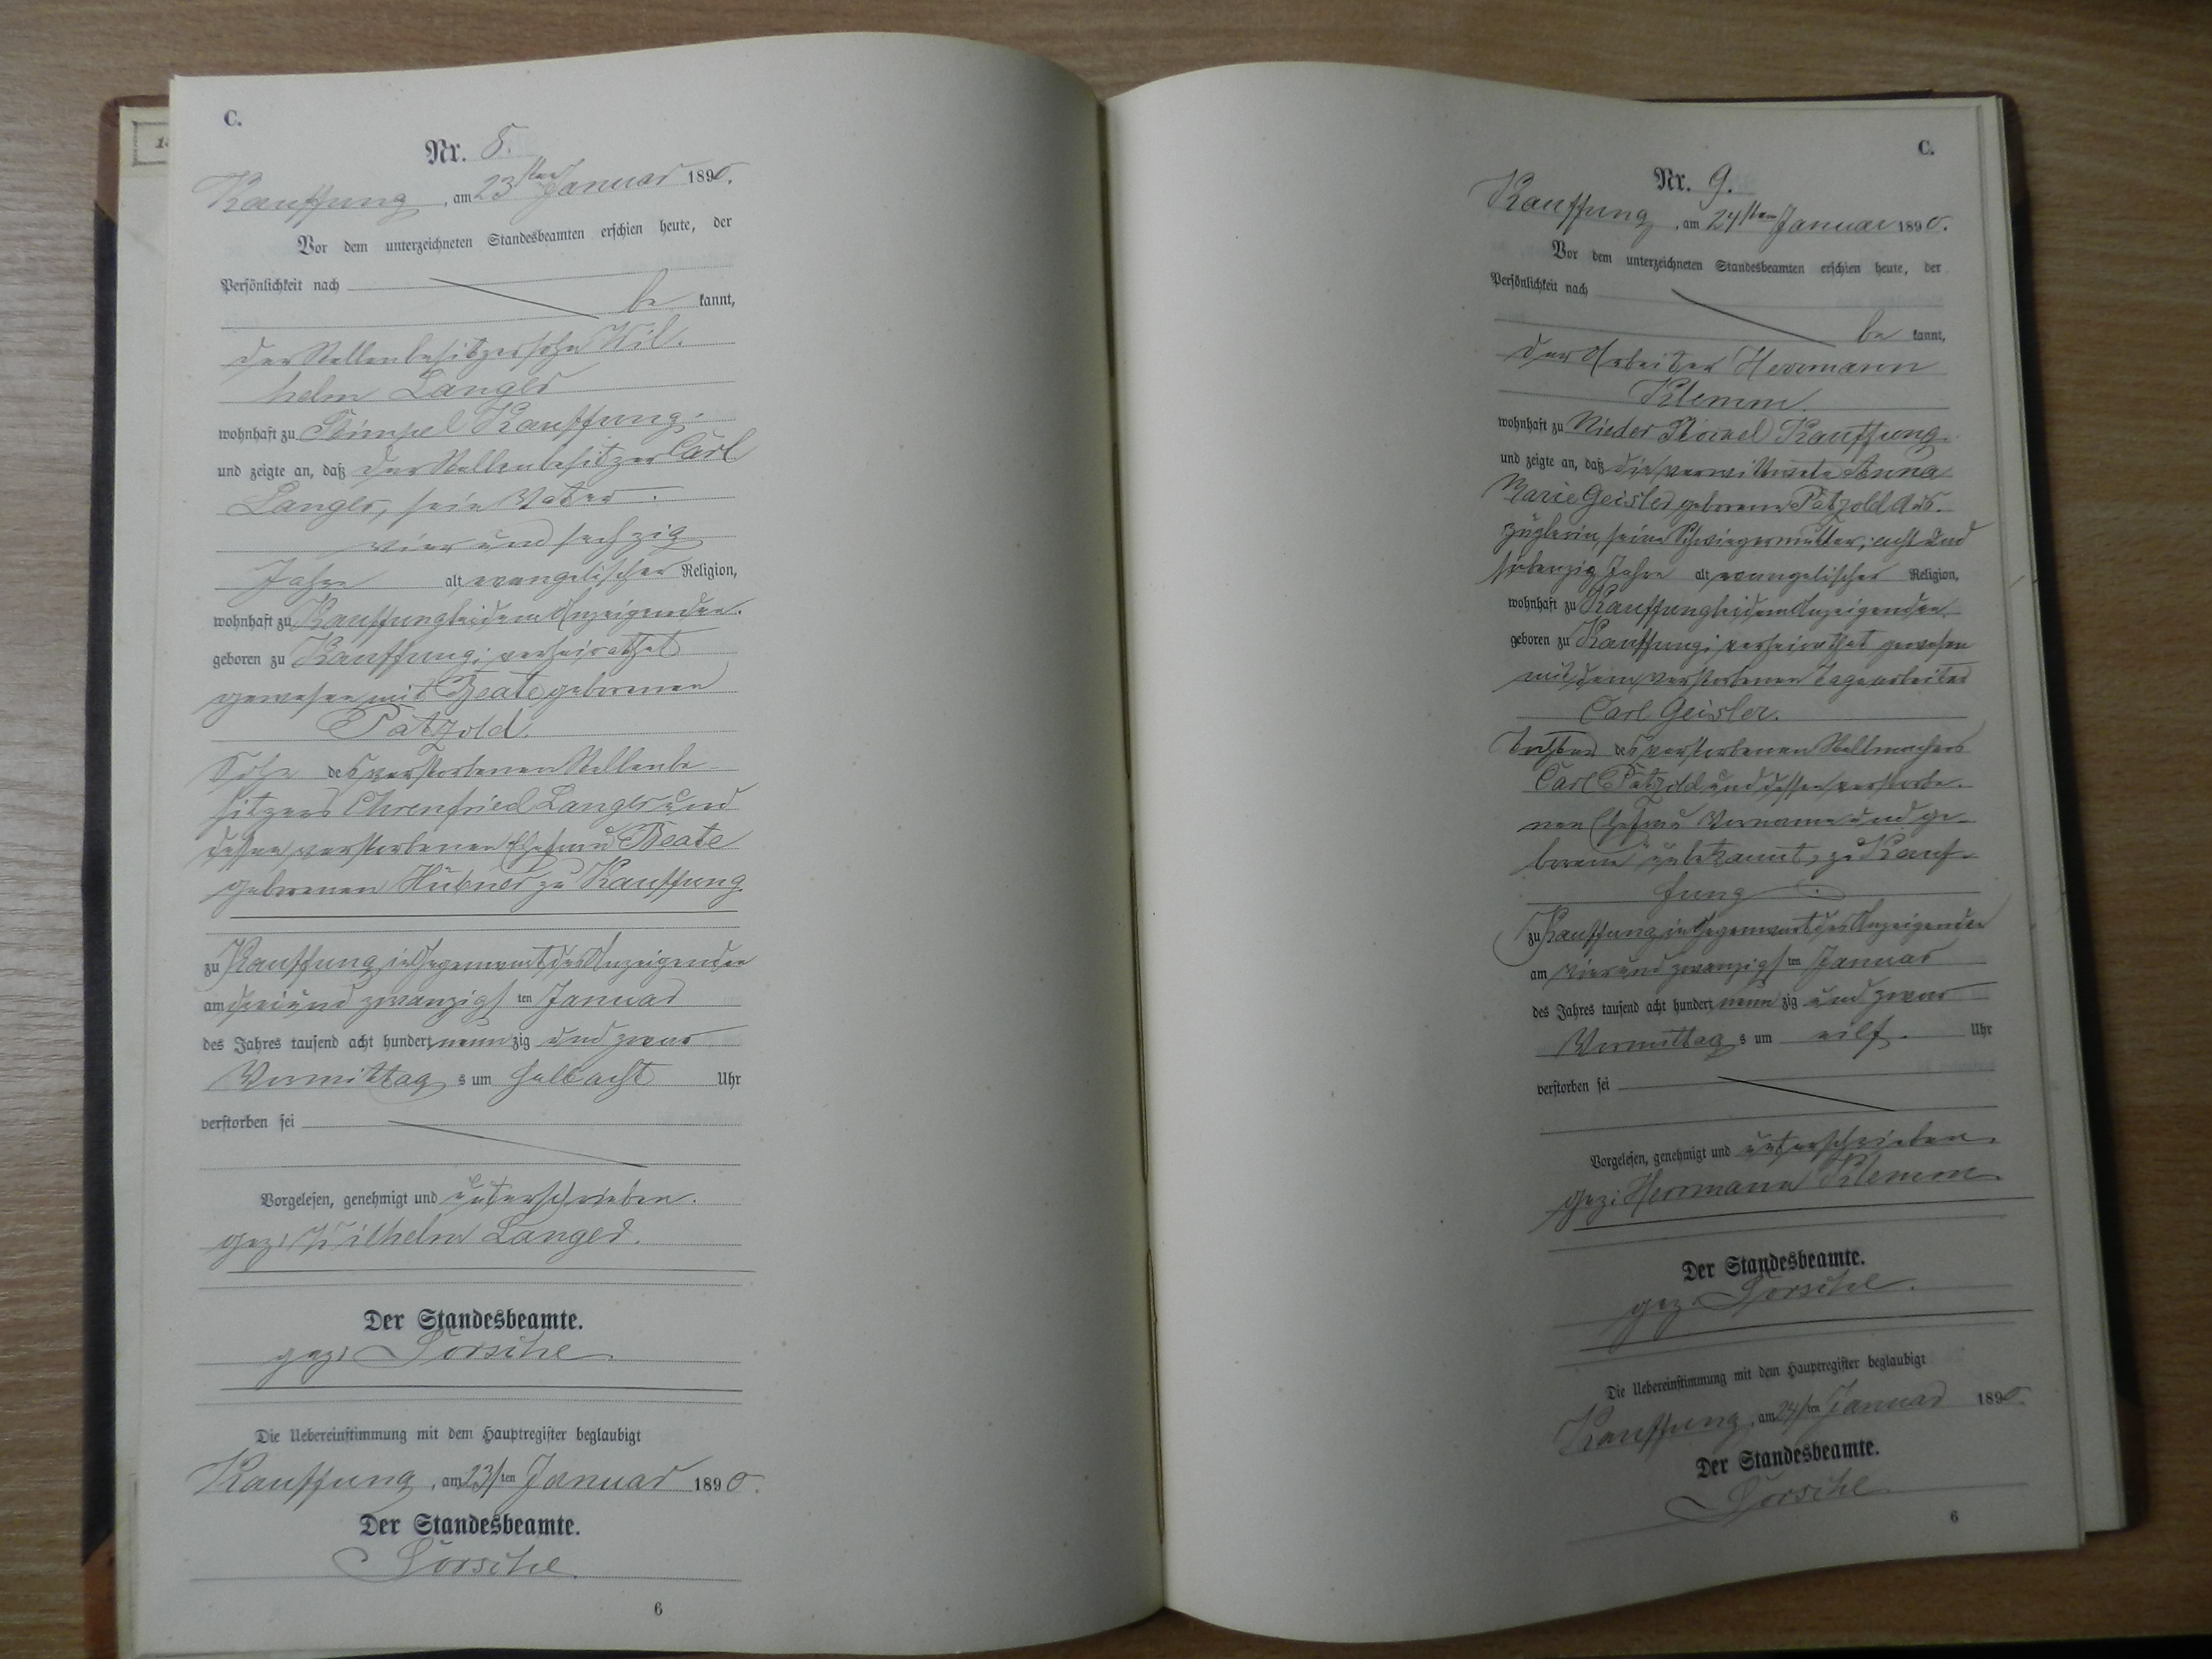 C.
Nr. 8.
Kauffung, am 23sten Januar 1890.
Vor dem unterzeichneten Standesbeamten erschien heute, der
Persönlichkeit nach
be kannt,
der Stellenbesitzersohn Wil-
helm Langer
wohnhaft zu Stimpel Kauffung.
und zeigte an, daß der Stellenbesitzer Carl
Langer, sein Vater.
vier und sechzig
Jahre alt, evangelischer Religion,
wohnhaft zu Kauffung bei dem Anzeigenden.
geboren zu Kauffung; verheirathet
gewesen mit Beate geborenen
Pätzold.
Sohn des verstorbenen Stellenbe-
sitzers Ehrenfried Langer und
dessen verstorbenen Ehefrau Beate
geborenen Hübner zu Kauffung
zu Kauffung in Gegenwart des Anzeigenden
am drei und zwanzigsten Januar
des Jahres tausend acht hundert neunzig und zwar
Vormittags um halb acht Uhr
verstorben sei
Vorgelesen, genehmigt und unterschrieben.
gez: Wilhelm Langer.
Der Standesbeamte.
gez:
Die Uebereinstimmung mit dem Hauptregister beglaubigt
Kauffung, am 23sten Januar 1890.
Der Standesbeamte.
6
C.
Nr. 9.
Kauffung, am 24sten Januar 1890.
Vor dem unterzeichneten Standesbeamten erschien heute, der
Persönlichkeit nach
be kannt,
der Arbeiter Herrmann
Klemm.
wohnhaft zu Nieder Kauffung
und zeigte an, daß die verwittwete Anna
Marie Geisler geborene Pätzold Aus-
züglerin, seine Schwiegermutter, acht und
siebenzig Jahre alt, evangelischer Religion,
wohnhaft zu Kauffung bei dem Anzeigenden
geboren zu Kauffung; verheirathet gewesen
mit dem verstorbenen Tagearbeiter
Carl Geisler.
Tochter des verstorbenen Stellmachers
Carl Pätzold und dessen verstorbe-
nen Ehefrau Vorname und ge-
borene unbekannt, zu Kauf-
fung.
zu Kauffung in Gegenwart des Anzeigenden
am vier und zwanzigsten Januar
des Jahres tausend acht hundert neunzig und zwar
Vormittags um eilf. Uhr
verstorben sei
Vorgelesen, genehmigt und unterschrieben.
gez: Herrmann Klemm
Der Standesbeamte.
gez:
Die Uebereinstimmung mit dem Hauptregister beglaubigt
Kauffung, am 24sten Januar 1890.
Der Standesbeamte.
6